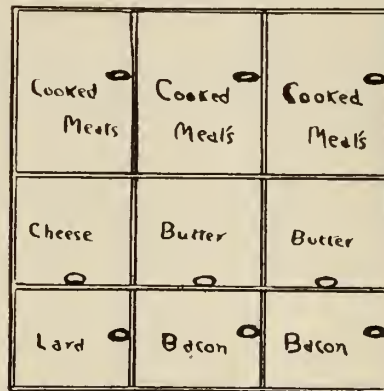 Cooked
Meats
Cooked
Meats
Cooked
Meats
Cheese
Butter
Butter
Lard
Bacon
Bacon